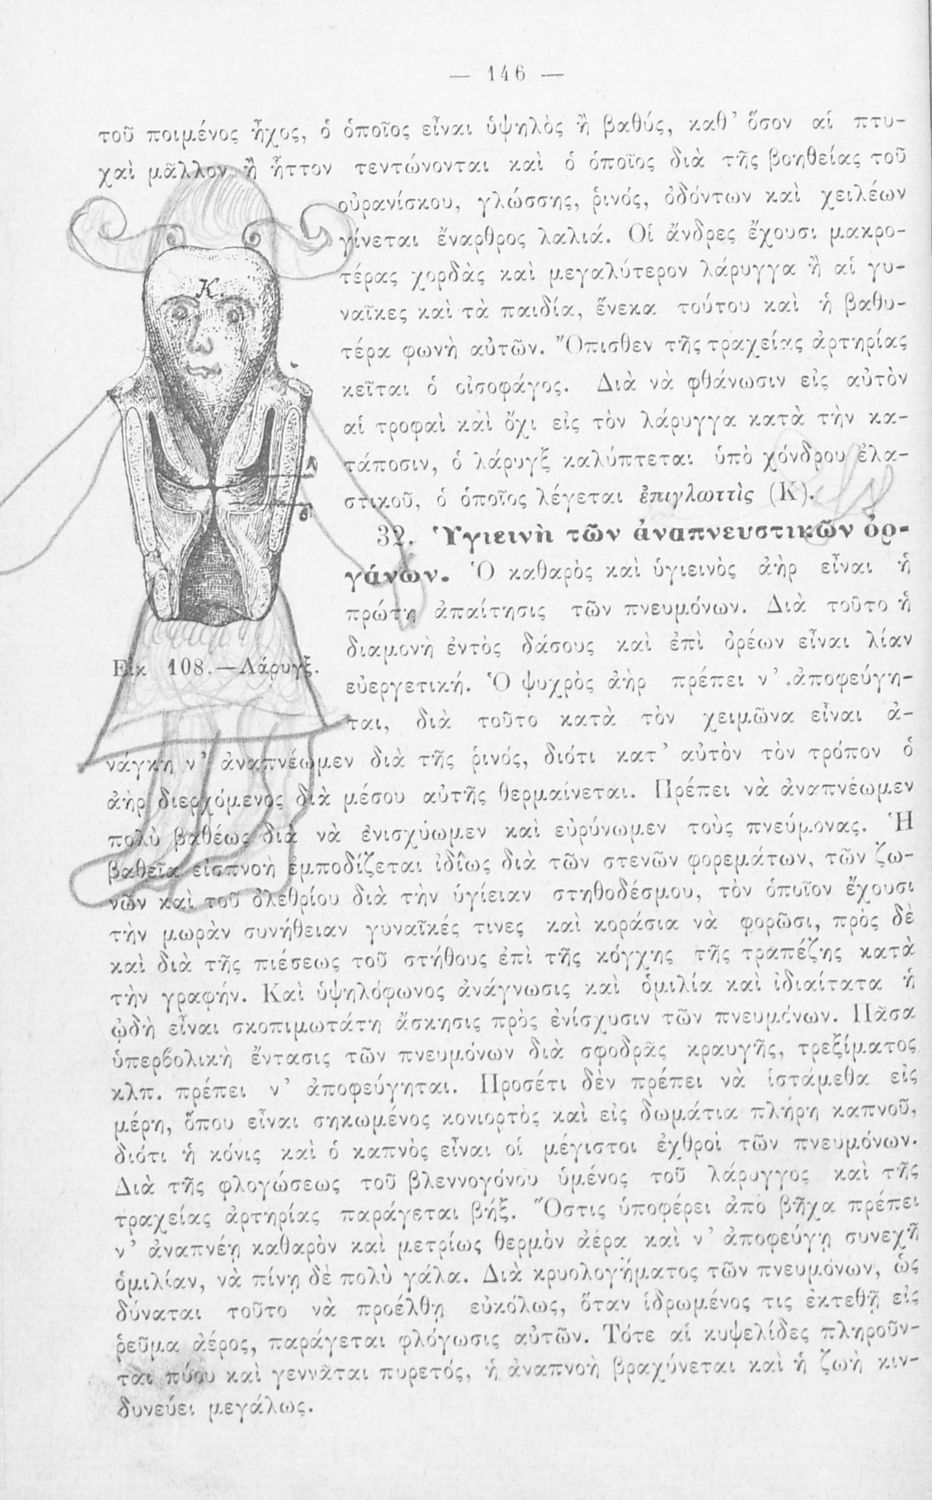 — 146 —
τοῦ ποιμένος ἦχος, ὁ ὁποῖος εἶναι ὑψηλὸς ἢ βαθύς, καθ’ ὅσον αἱ πτυ-
χαὶ μᾶλλον ἢ ἧττον τεντώνονται καὶ ὁ ὁποῖος διὰ τῆς βοηθείας τοῦ
οὐρανίσκου, γλώσσης, ῥινός, ὀδόντων καὶ χειλέων
γίνεται ἔναρθρος λαλιά. Οἱ ἄνδρες ἔχουσι μακρο-
τέρας χορδὰς καὶ μεγαλύτερον λάρυγγα ἢ αἱ γυ-
ναῖκες καὶ τὰ παιδία, ἕνεκα τούτου καὶ ἡ βαθυ-
τέρα φωνὴ αὐτῶν. Ὄπισθεν τῆς τραχείας ἀρτηρίας
κεῖται ὁ οἰσοφάγος. Διὰ νὰ φθάνωσιν εἰς αὐτὸν
αἱ τροφαὶ καὶ ὄχι εἰς τὸν λάρυγγα κατὰ τὴν κα-
τάποσιν, ὁ λάρυγξ καλύπτεται ὑπὸ χόνδρου ἐλα-
στικοῦ, ὁ ὁποῖος λέγεται ἐπιγλωττὶς (Κ).
Κ
32. Ὑγιεινὴ τῶν ἀναπνευστικῶν ὀρ-
γάνων. Ὁ καθαρὸς καὶ ὑγιεινὸς ἀὴρ εἶναι ἡ
πρώτη ἀπαίτησις τῶν πνευμόνων. Διὰ τοῦτο ἡ
διαμονὴ ἐντὸς δάσους καὶ ἐπὶ ὀρέων εἶναι λίαν
Εικ 108.—Λάρυγξ.
εὐεργετική. Ὁ ψυχρὸς ἀὴρ πρέπει ν’ ἀποφεύγη-
ται, διὰ τοῦτο κατὰ τὸν χειμῶνα εἶναι ἀ-
νάγκη ν’ ἀναπνέωμεν διὰ τῆς ῥινός, διότι κατ’ αὐτὸν τὸν τρόπον ὁ
ἀὴρ διερχόμενος διὰ μέσου αὐτῆς θερμαίνεται. Πρέπει νὰ ἀναπνέωμεν
πολὺ βαθέως διὰ νὰ ἐνισχύωμεν καὶ εὐρύνωμεν τοὺς πνεύμονας. Ἡ
βαθεῖα εἰσπνοὴ ἐμποδίζεται ἰδίως διὰ τῶν στενῶν φορεμάτων, τῶν ζω-
νῶν καὶ τοῦ ὀλεθρίου διὰ τὴν ὑγίειαν στηθοδέσμου, τὸν ὁποῖον ἔχουσι
τὴν μωρὰν συνήθειαν γυναῖκές τινες καὶ κοράσια νὰ φορῶσι, πρὸς δὲ
καὶ διὰ τῆς πιέσεως τοῦ στήθους ἐπὶ τῆς κόγχης τῆς τραπέζης κατὰ
τὴν γραφήν. Καὶ ὑψηλόφωνος ἀνάγνωσις καὶ ὁμιλία καὶ ἰδιαίτατα ἡ
ᾠδὴ εἶναι σκοπιμωτάτη ἄσκησις πρὸς ἐνίσχυσιν τῶν πνευμόνων. Πᾶσα
ὑπερβολικὴ ἔντασις τῶν πνευμόνων διὰ σφοδρᾶς κραυγῆς, τρεξίματος
κλπ. πρέπει ν’ ἀποφεύγηται. Προσέτι δὲν πρέπει νὰ ἱστάμεθα εἰς
μέρη, ὅπου εἶναι σηκωμένος κονιορτὸς καὶ εἰς δωμάτια πλήρη καπνοῦ,
διότι ἡ κόνις καὶ ὁ καπνὸς εἶναι οἱ μέγιστοι ἐχθροὶ τῶν πνευμόνων.
Διὰ τῆς φλογώσεως τοῦ βλεννογόνου ὑμένος τοῦ λάρυγγος καὶ τῆς
τραχείας ἀρτηρίας παράγεται βήξ. Ὅστις ὑποφέρει ἀπὸ βῆχα πρέπει
ν’ ἀναπνέῃ καθαρὸν καὶ μετρίως θερμὸν ἀέρα καὶ ν’ ἀποφεύγῃ συνεχῆ
ὁμιλίαν, νὰ πίνῃ δὲ πολὺ γάλα. Διὰ κρυολογήματος τῶν πνευμόνων, ὡς
δύναται τοῦτο νὰ προέλθῃ εὐκόλως, ὅταν ἱδρωμένος τις ἐκτεθῇ εἰς
ῥεῦμα ἀέρος, παράγεται φλόγωσις αὐτῶν. Τότε αἱ κυψελίδες πληροῦν-
ται πύου καὶ γεννᾶται πυρετός, ἡ ἀναπνοὴ βραχύνεται καὶ ἡ ζωὴ κιν-
δυνεύει μεγάλως.